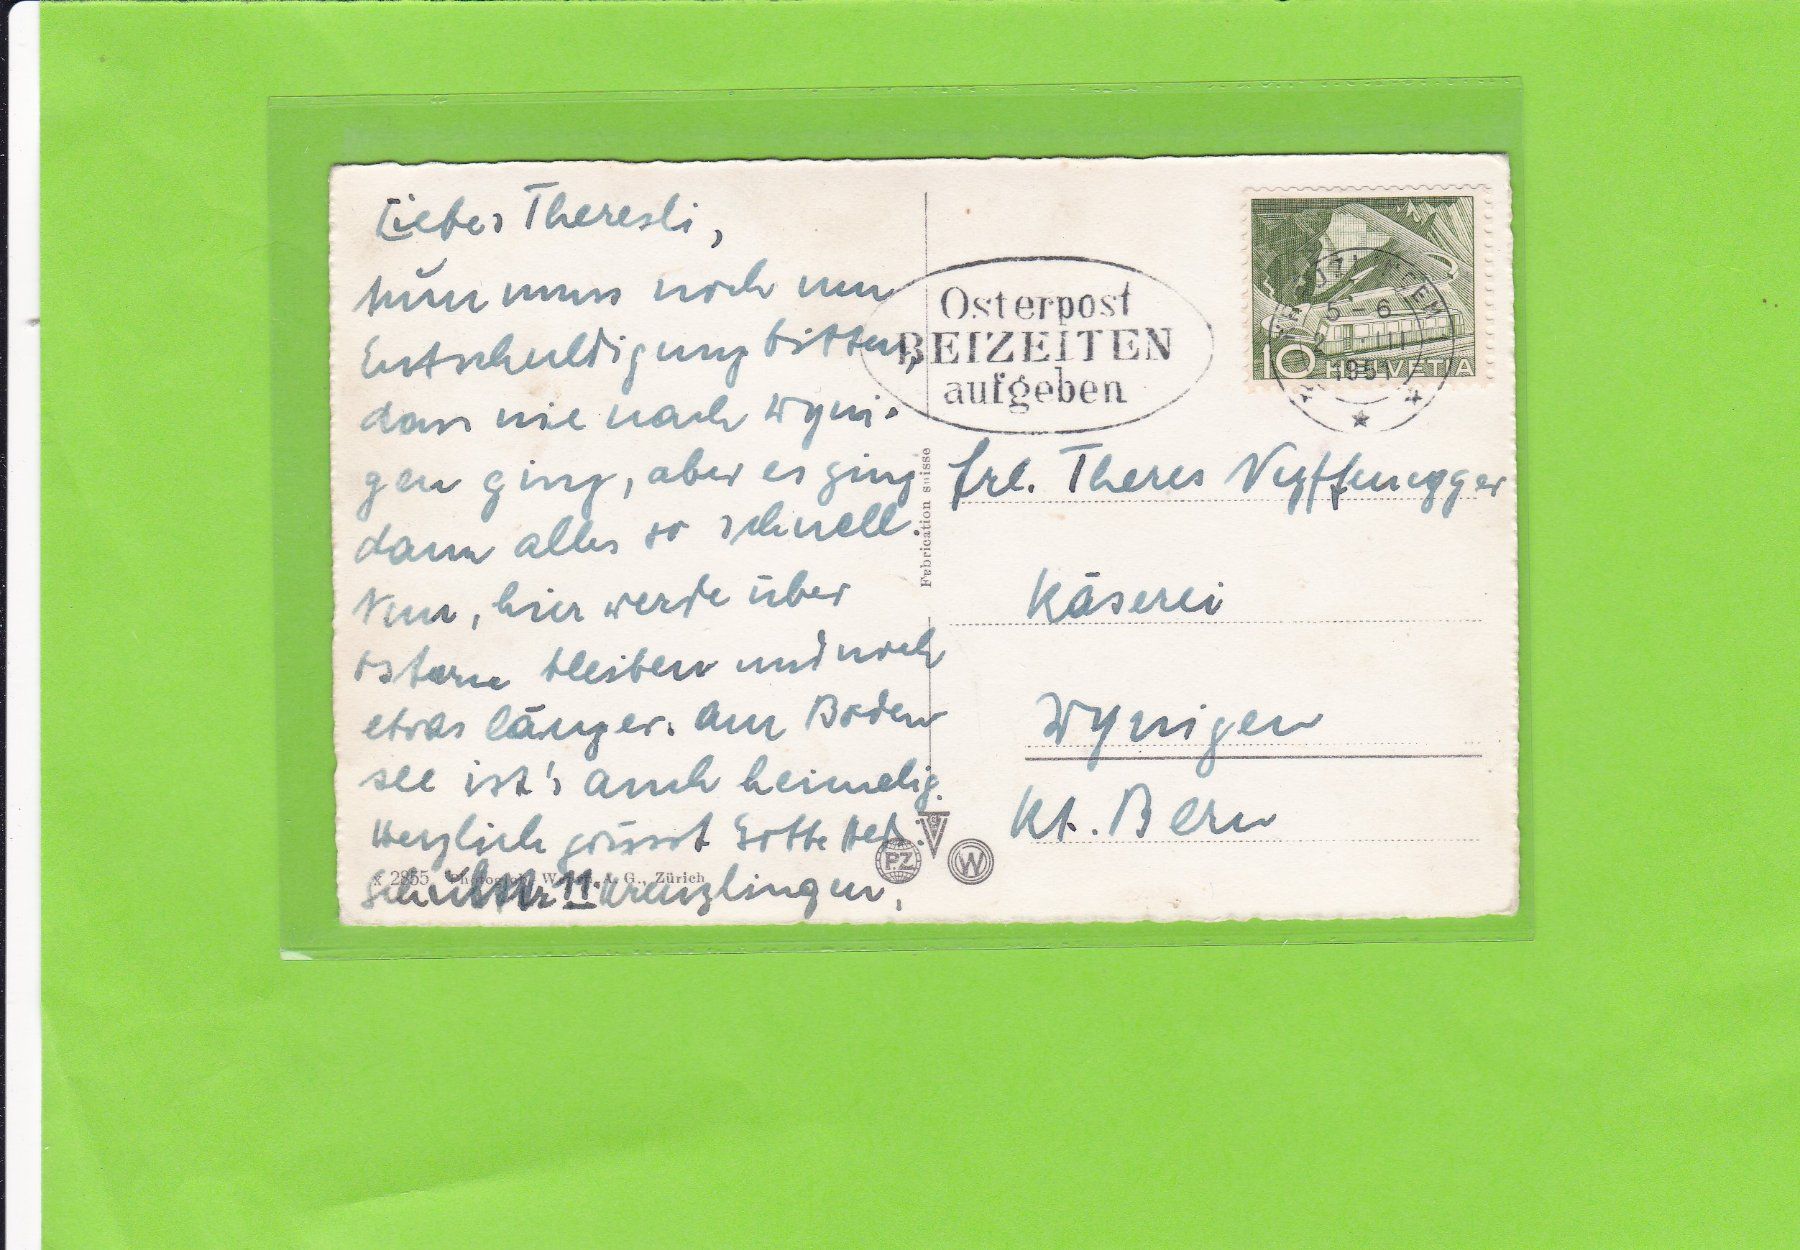 Liebes Theresli,
nun muss noch um
Entschuldigung bitten,
dass nie nach Wyni-
gen ging, aber es ging
dann alles so schnell.
Nun, hier werde über
Ostern bleiben und noch
etwas länger. Am Boden
see ist's auch heimelig.
Herzlich grüsst Gotte Hed.
11 Kreuzlingen,
X 2855 Photogr. A. G., Zürich
Fabrication suisse
PZ
W
Osterpost
BEIZEITEN
aufgeben
KREUZLINGEN
5-6
1951
10 HELVETIA
Frl. Theres Nyffenegger
Käserei
Wynigen
Kt. Bern